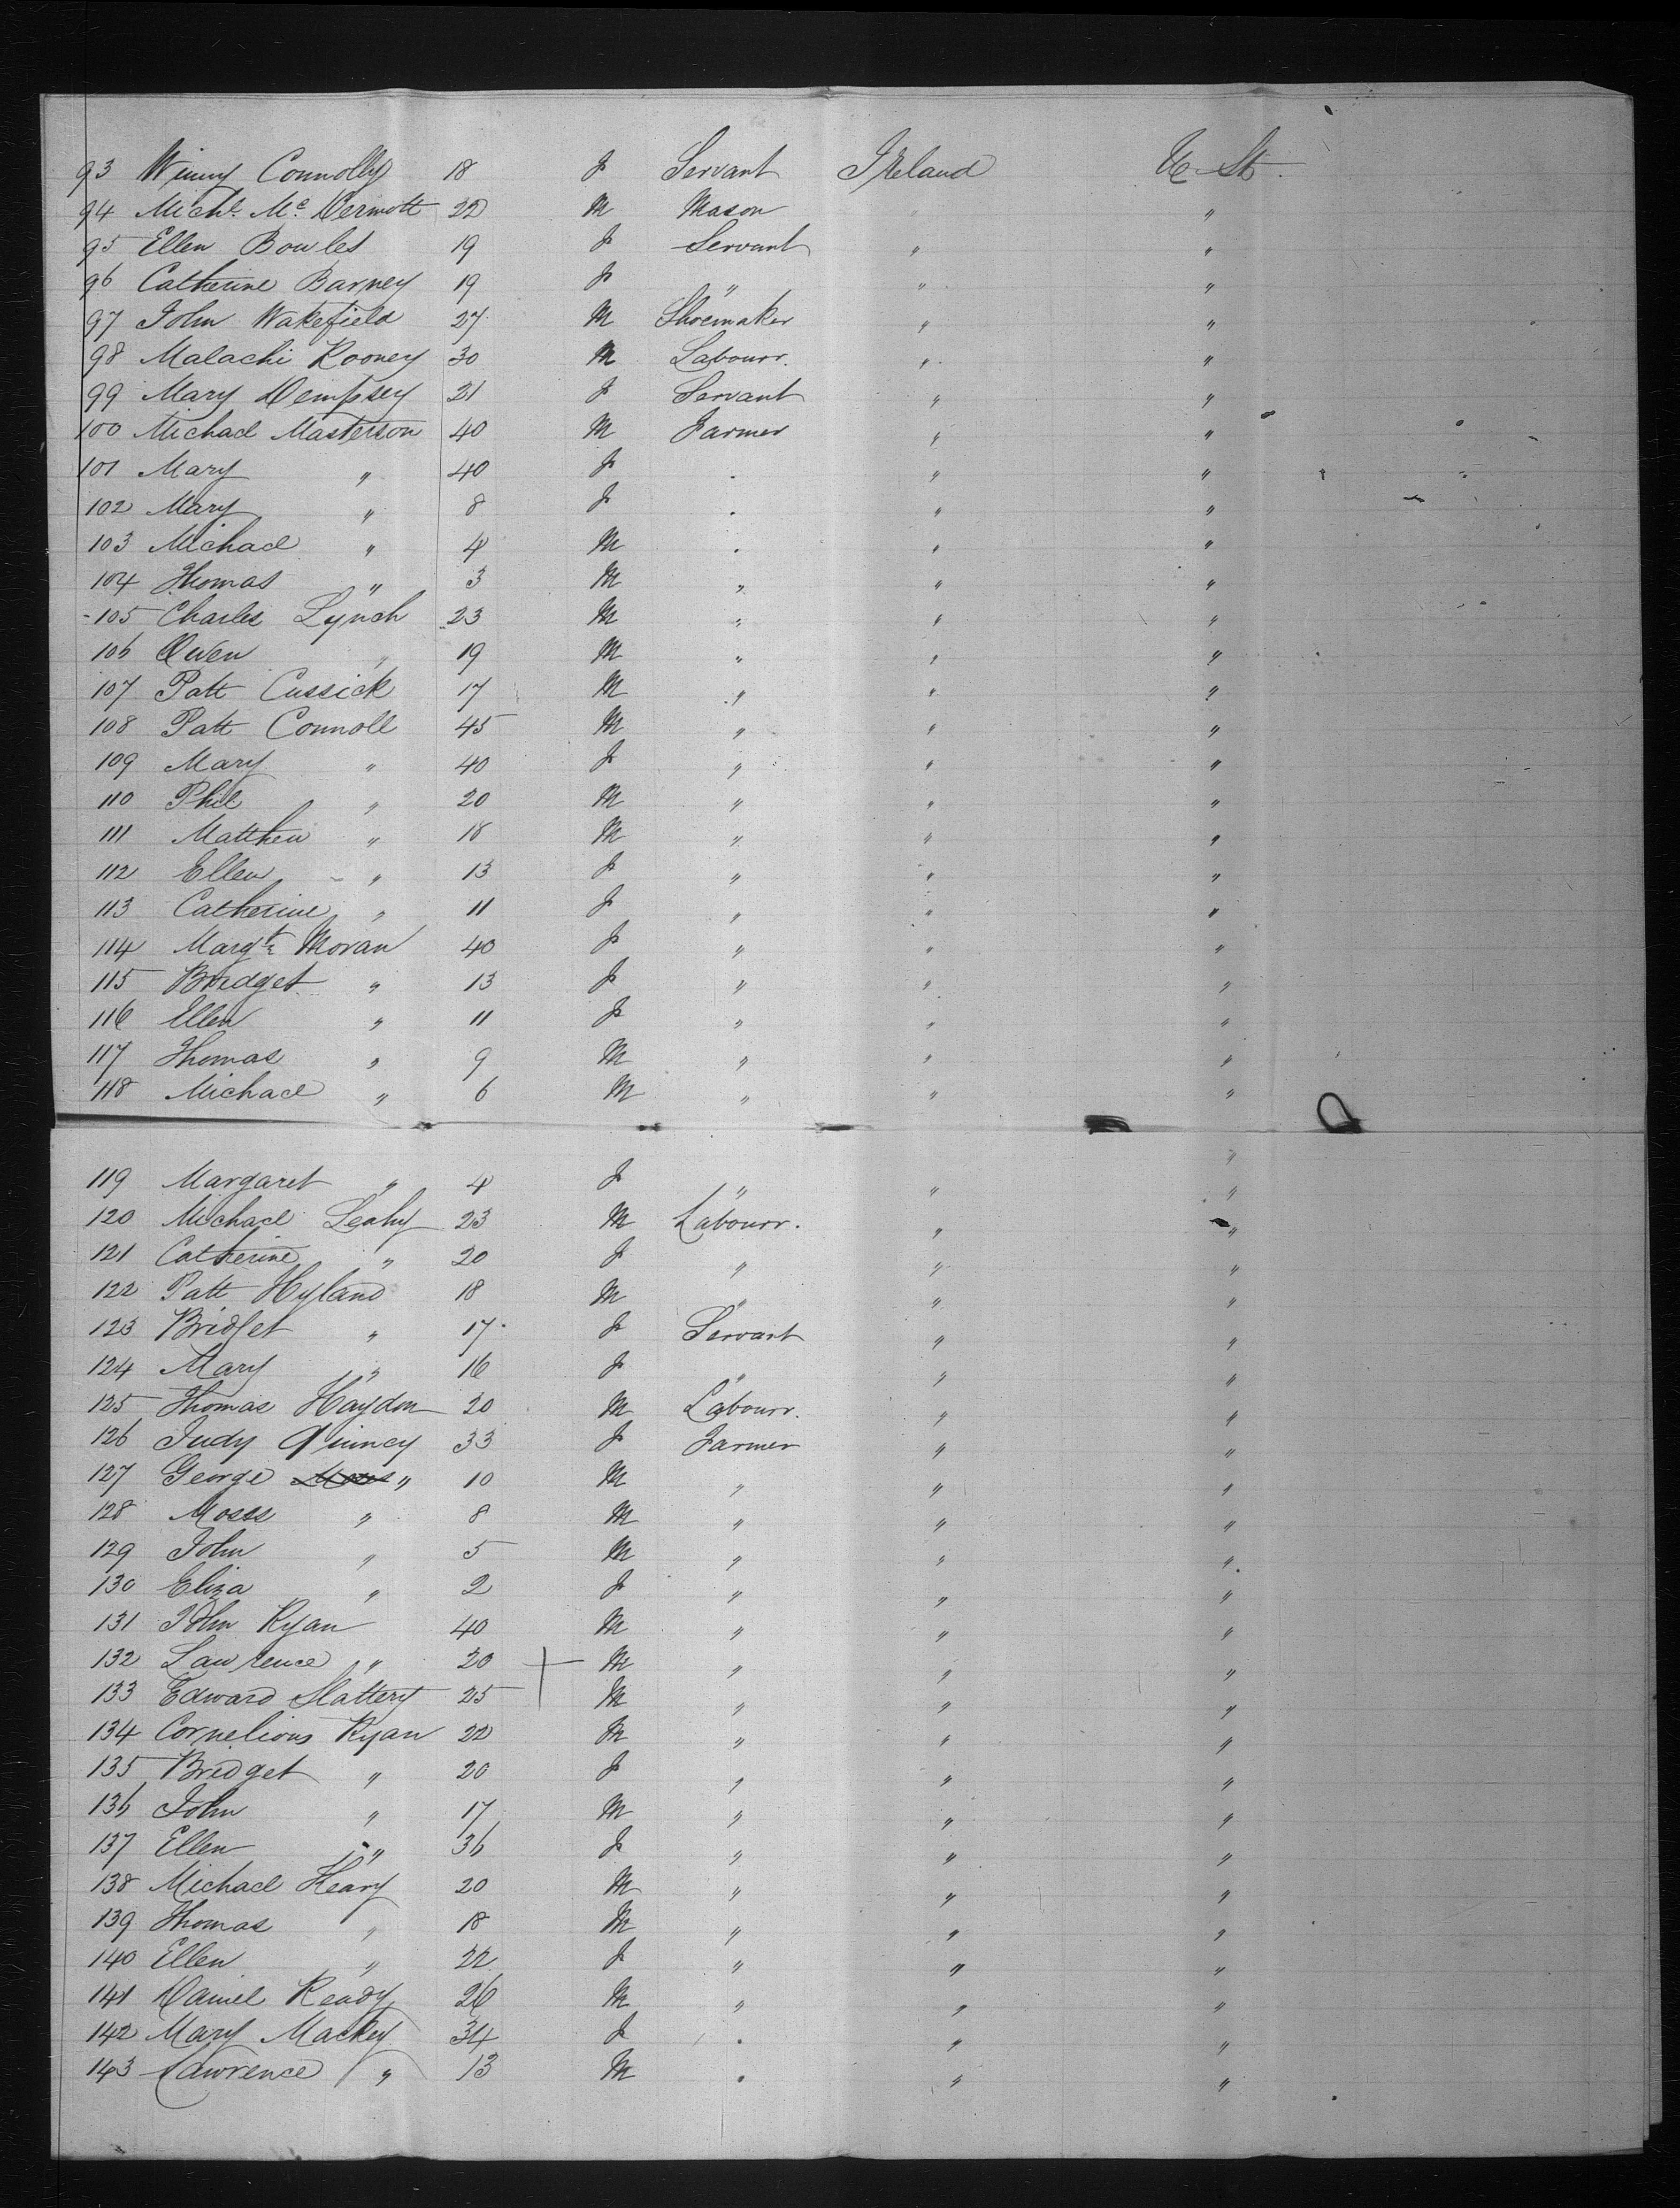 93 Winny Connolly 18 F Servant Ireland U. St.
94 Michl. Mc Dermott 22 M Mason " "
95 Ellen Bowles 19 F Servant " "
96 Catherine Barney 19 F " " "
97 John Wakefield 27 M Shoemaker " "
98 Malachi Rooney 30 M Labourr. " "
99 Mary Dempsey 21 F Servant " "
100 Michael Masterson 40 M Farmer " "
101 Mary " 40 F . " "
102 Mary " 8 F . " "
103 Michael " 4 M . " "
104 Thomas " 3 M " " "
105 Charles Lynch 23 M " " "
106 Owen " 19 M " " "
107 Patt Cussick 17 M " " "
108 Patt Connoll 45 M " " "
109 Mary " 40 F " " "
110 Phil " 20 M " " "
111 Matthew " 18 M " " "
112 Ellen " 13 F " " "
113 Catherine " 11 F " " "
114 Margt. Moran 40 F " " "
115 Bridget " 13 F " " "
116 Ellen " 11 F " " "
117 Thomas " 9 M " " "
118 Michael " 6 M " " "
"
119 Margaret " 4 F " " "
120 Michael Leahy 23 M Labourr. " "
121 Catherine " 20 F " " "
122 Patt Hyland 18 M " " "
123 Bridget " 17 F Servant " "
124 Mary " 16 F " " "
125 Thomas Haydon 20 M Labourr. " "
126 Judy Quincy 33 F Farmer " "
127 George " 10 M " " "
128 Moses " 8 M " " "
129 John " 5 M " " "
130 Eliza " 2 F " " "
131 John Ryan 40 M " " "
132 Lawrence " 20 M " " "
133 Edward Slattery 25 M " " "
134 Cornelious Ryan 22 M " " "
135 Bridget " 20 F " " "
136 John " 17 M " " "
137 Ellen " 36 F " " "
138 Michael Heary 20 M " " "
139 Thomas " 18 M " " "
140 Ellen " 22 F " " "
141 Daniel Ready 26 M " " "
142 Mary Mackey 34 F . " "
143 Lawrence " 13 M . " "